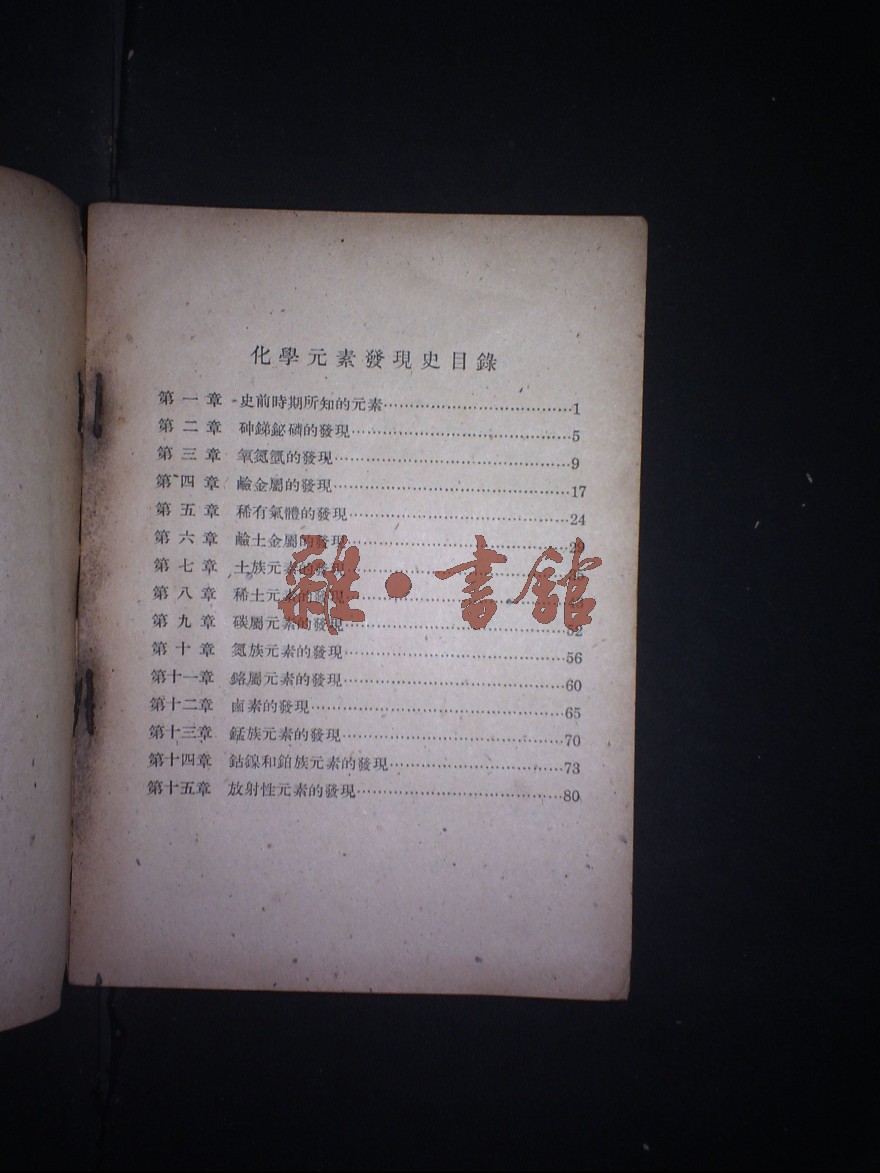 化學元素發現史目錄
第一章 史前時期所知的元素……………………………1
第二章 砷銻鉍磷的發現……………………………5
第三章 氧氮氫的發現……………………………9
第四章 鹼金屬的發現……………………………17
第五章 稀有氣體的發現……………………………24
第六章 鹼土金屬的發現……………………………29
第七章 土族元素的發現……………………………
第八章 稀土元素的發現……………………………
第九章 碳屬元素的發現……………………………52
第十章 氮族元素的發現……………………………56
第十一章 鉻屬元素的發現……………………………60
第十二章 鹵素的發現……………………………65
第十三章 錳族元素的發現……………………………70
第十四章 鈷鎳和鉑族元素的發現……………………………73
第十五章 放射性元素的發現……………………………80
雜·書館